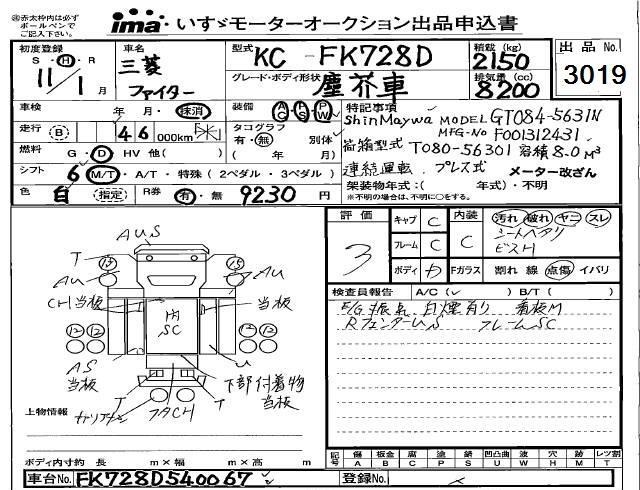 ※赤太枠内は必ず
ボールペンで
ご記入下さい。
ima いすゞモーターオークション出品申込書
初度登録 S・H・R 11年 1月
車名 三菱 ファイター
型式 KC - FK728D
グレード・ボディ形状 塵芥車
積載 (kg) 2150
排気量 (cc) 8200
出品No. 3019
車検 年 月・抹消
装備 AC PS PW
特記事項 ShinMaywa MODEL GT084-5631N
MFG-No F001312431
走行 B 46 000km
タコグラフ 有・無 別体
( 年 月)
荷箱型式 T080-56301 容積 8.0 M³
燃料 G・D HV 他( )
連続運転、プレス式 メーター改ざん
シフト 6 M/T・A/T・特殊(2ペダル・3ペダル)
架装物年式:( 年式)・不明
※不明の場合は、不明に○をする。
色 白 (指定) R券 有・無 9230 円
評価 3
キャブ C 内装 C 汚れ 破れ ヤニ スレ
フレーム C シートヘタリ
ビスH
ボディ Fガラス 割れ 線 点傷 イバリ
検査員報告 A/C( ) B/T( )
E/G 振、白煙有り 看板M
RフェンダーUS フレームSC
AUS
T
13 15
AU AU
CH 当板 当板
SC
12 12 12 12
AS
当板
U
下部付着物
当板
T T
フタCH
上物情報
ボディ内寸約 長 m×幅 m×高 m
記号 傷A 板金B 腐C 塗P 錆S 凹凸曲U 補W 穴H 跡M レツ割T
車台No. FK728D540067
登録No.